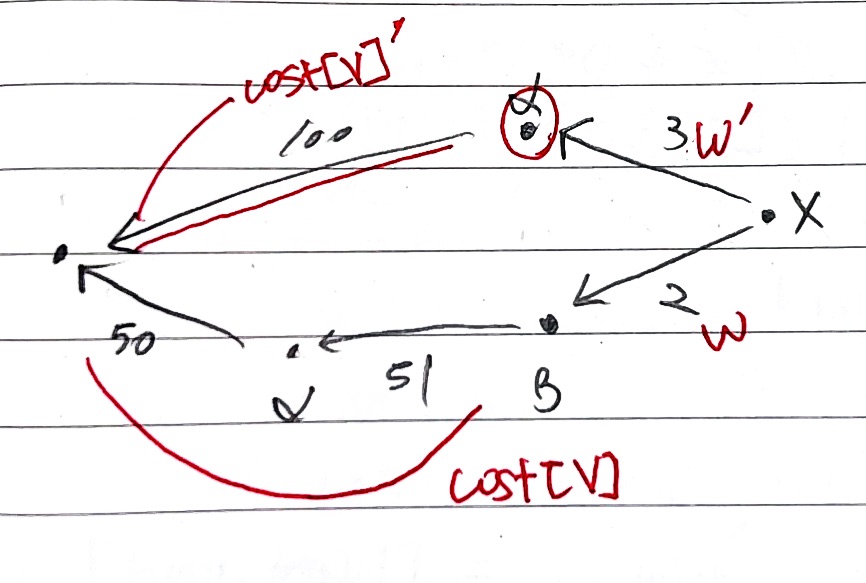 cost[V]'
100
α
3 W'
X
2 W
50
51
α
B
cost[V]